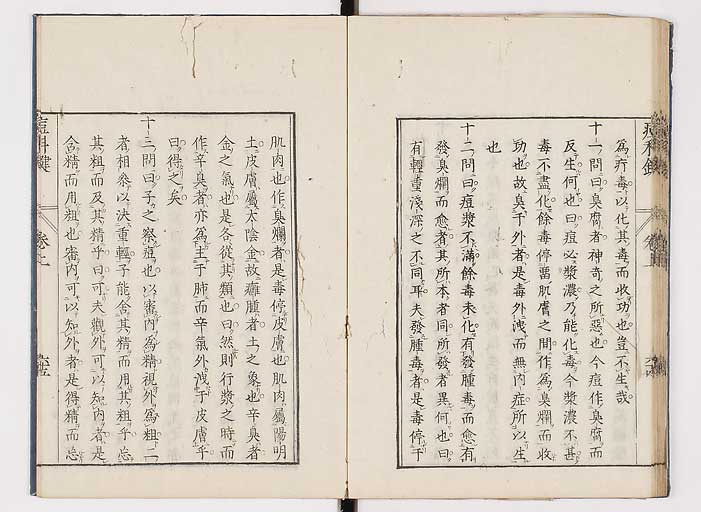 為疔毒以化其毒而收功也豈不生哉
十一問曰臭腐者神奇之所惡也今痘作臭腐而
反生何也曰痘必漿濃乃能化毒今漿濃不甚
毒不盡化餘毒停畱肌膚之間作為臭爛而收
功也故臭于外者是毒外洩而無內症所以生
也
十二問曰痘漿不滿餘毒未化有發腫毒而愈有
發臭爛而愈者其所本者同所發者異何也曰
有輕重淺深之不同耳夫發腫毒者是毒停于
肌肉也作臭爛者是毒停皮膚也肌肉屬陽明
土皮膚屬太陰金故癰腫者土之象也辛臭者
金之氣也是各從其類也曰然則行漿之時而
作辛臭者亦為主于肺而辛氣外洩于皮膚乎
曰得之矣
十三問曰子之察痘也以審內為精視外為粗二
者相參以決重輕子能舍其精而用其粗乎忘
其粗而及其精乎曰可夫觀外可以知內者是
含精而用粗也審內可以知外者是得精而忘
痘科鍵
卷上